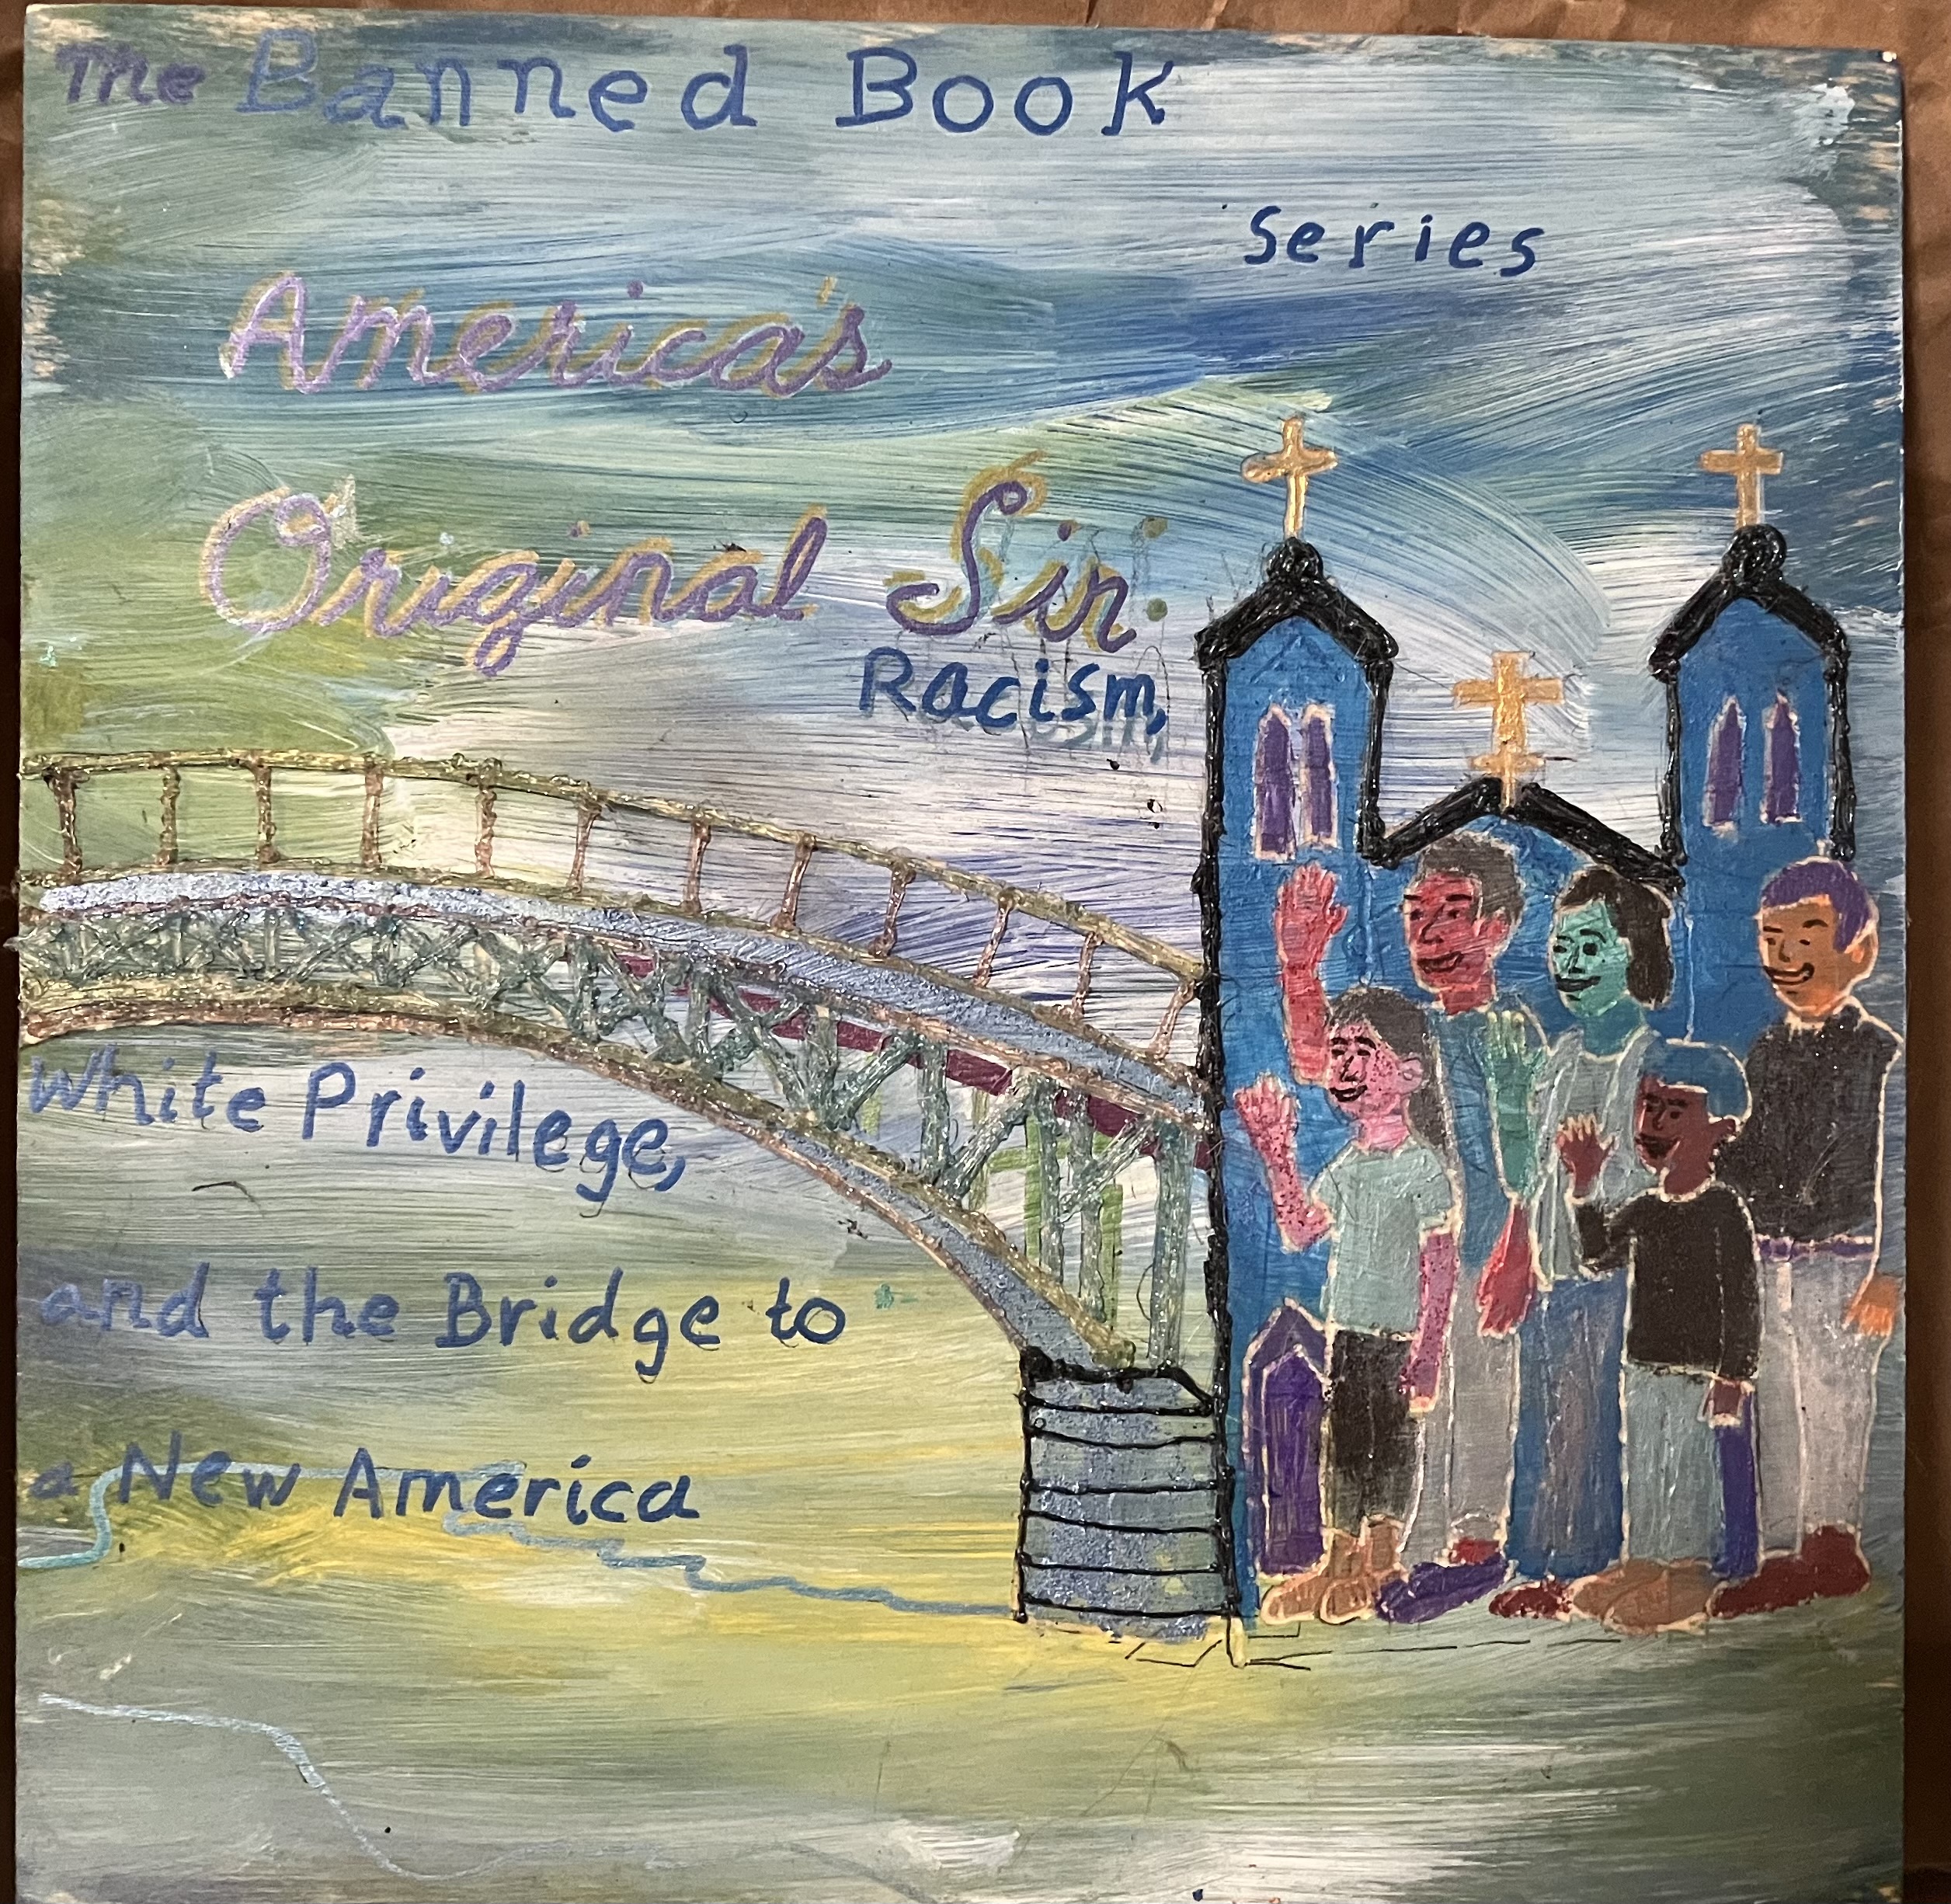 The Banned Book
Series
America's
Original Sin:
Racism,
White Privilege,
and the Bridge to
a New America